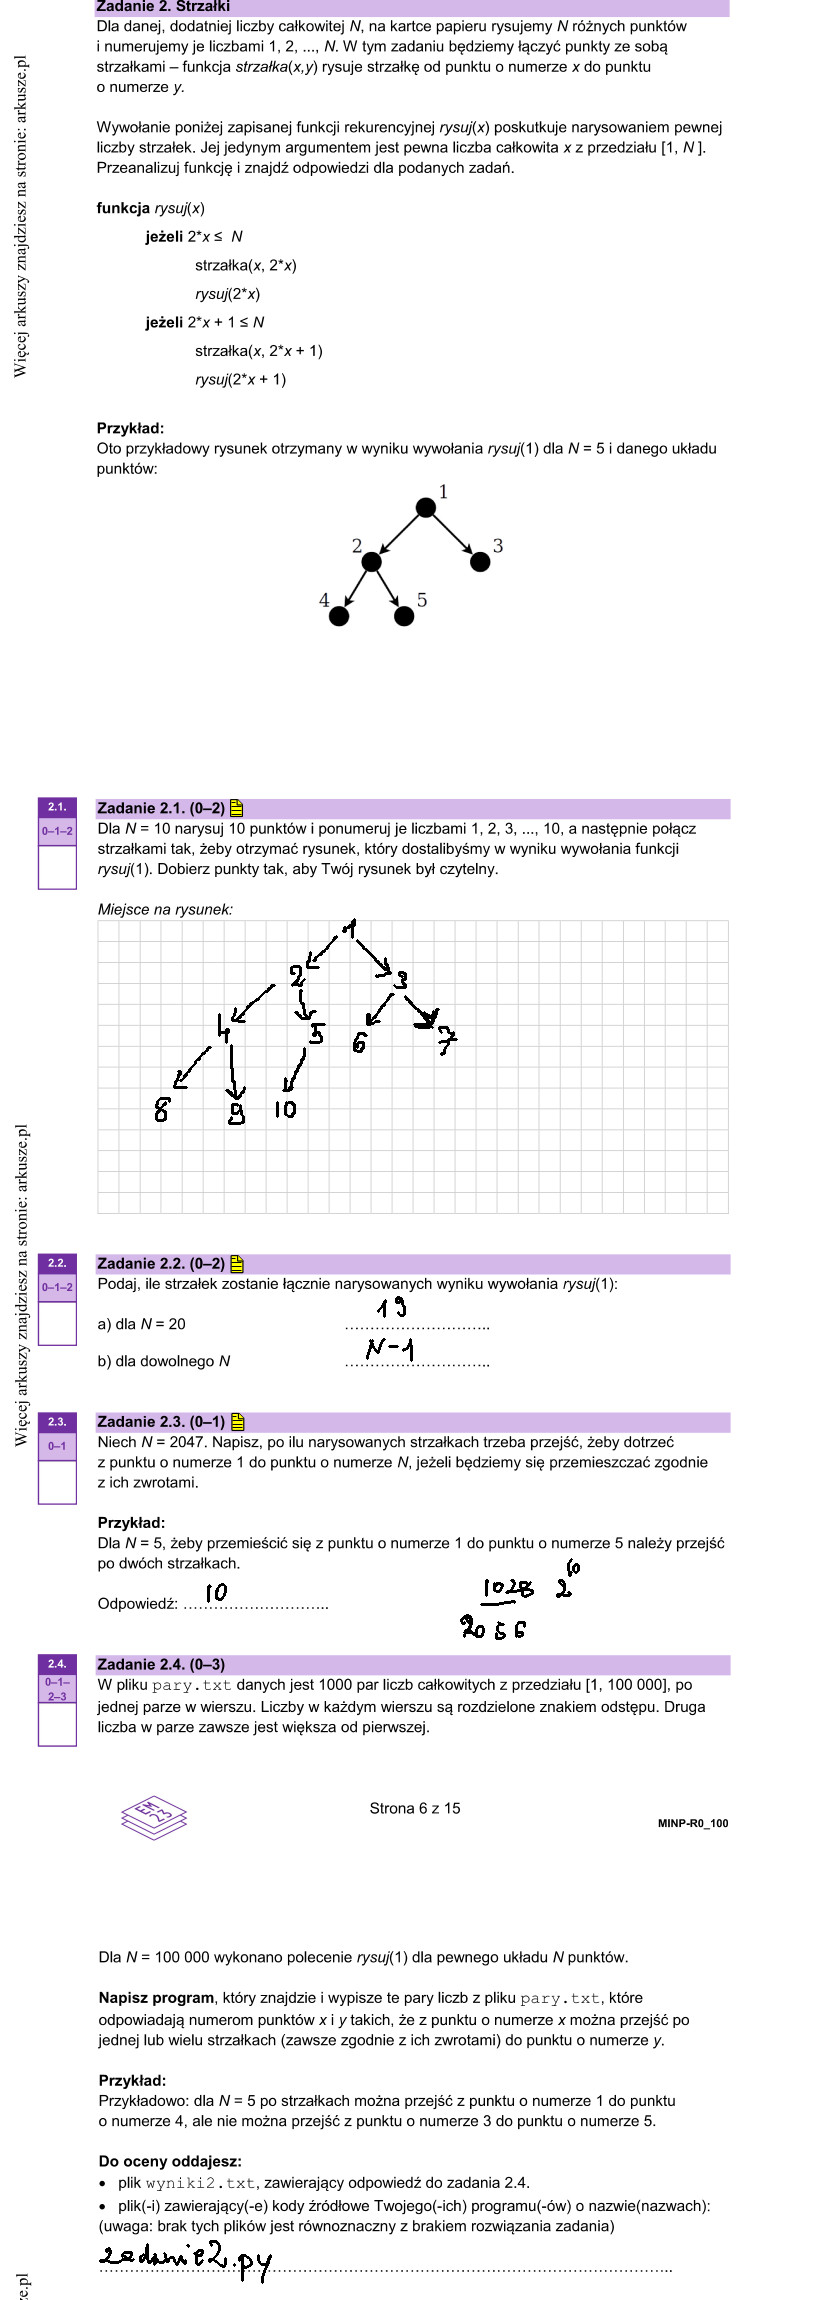 Zadanie 2. Strzałki
Dla danej, dodatniej liczby całkowitej N, na kartce papieru rysujemy N różnych punktów
i numerujemy je liczbami 1, 2, ..., N. W tym zadaniu będziemy łączyć punkty ze sobą
strzałkami – funkcja strzałka(x,y) rysuje strzałkę od punktu o numerze x do punktu
o numerze y.
Wywołanie poniżej zapisanej funkcji rekurencyjnej rysuj(x) poskutkuje narysowaniem pewnej
liczby strzałek. Jej jedynym argumentem jest pewna liczba całkowita x z przedziału [1, N ].
Przeanalizuj funkcję i znajdź odpowiedzi dla podanych zadań.
Więcej arkuszy znajdziesz na stronie: arkusze.pl
funkcja rysuj(x)
jeżeli 2*x ≤ N
strzałka(x, 2*x)
rysuj(2*x)
jeżeli 2*x + 1 ≤ N
strzałka(x, 2*x + 1)
rysuj(2*x + 1)
Przykład:
Oto przykładowy rysunek otrzymany w wyniku wywołania rysuj(1) dla N = 5 i danego układu
punktów:
1
2 3
4 5
2.1.
0–1–2
Zadanie 2.1. (0–2)
Dla N = 10 narysuj 10 punktów i ponumeruj je liczbami 1, 2, 3, ..., 10, a następnie połącz
strzałkami tak, żeby otrzymać rysunek, który dostalibyśmy w wyniku wywołania funkcji
rysuj(1). Dobierz punkty tak, aby Twój rysunek był czytelny.
Miejsce na rysunek:
1
2 3
4 5 6 7
8 9 10
Więcej arkuszy znajdziesz na stronie: arkusze.pl
2.2.
0–1–2
Zadanie 2.2. (0–2)
Podaj, ile strzałek zostanie łącznie narysowanych wyniku wywołania rysuj(1):
a) dla N = 20 19
b) dla dowolnego N N-1
2.3.
0–1
Zadanie 2.3. (0–1)
Niech N = 2047. Napisz, po ilu narysowanych strzałkach trzeba przejść, żeby dotrzeć
z punktu o numerze 1 do punktu o numerze N, jeżeli będziemy się przemieszczać zgodnie
z ich zwrotami.
Przykład:
Dla N = 5, żeby przemieścić się z punktu o numerze 1 do punktu o numerze 5 należy przejść
po dwóch strzałkach.
Odpowiedź: 10
1028 2^10
2056
2.4.
0–1–
2–3
Zadanie 2.4. (0–3)
W pliku pary.txt danych jest 1000 par liczb całkowitych z przedziału [1, 100 000], po
jednej parze w wierszu. Liczby w każdym wierszu są rozdzielone znakiem odstępu. Druga
liczba w parze zawsze jest większa od pierwszej.
EM
23
Strona 6 z 15
MINP-R0_100
Dla N = 100 000 wykonano polecenie rysuj(1) dla pewnego układu N punktów.
Napisz program, który znajdzie i wypisze te pary liczb z pliku pary.txt, które
odpowiadają numerom punktów x i y takich, że z punktu o numerze x można przejść po
jednej lub wielu strzałkach (zawsze zgodnie z ich zwrotami) do punktu o numerze y.
Przykład:
Przykładowo: dla N = 5 po strzałkach można przejść z punktu o numerze 1 do punktu
o numerze 4, ale nie można przejść z punktu o numerze 3 do punktu o numerze 5.
Do oceny oddajesz:
• plik wyniki2.txt, zawierający odpowiedź do zadania 2.4.
• plik(-i) zawierający(-e) kody źródłowe Twojego(-ich) programu(-ów) o nazwie(nazwach):
(uwaga: brak tych plików jest równoznaczny z brakiem rozwiązania zadania)
zadanie2.py
ze.pl